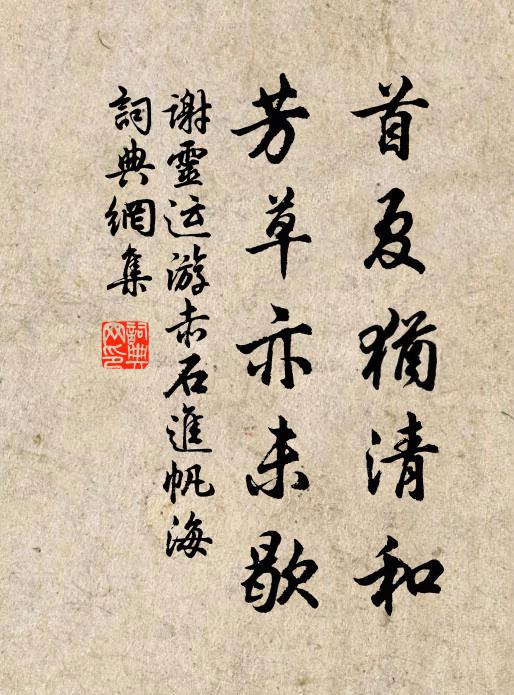 首夏猶清和
芳草亦未歇
謝靈运游赤石進帆海
詞典網集
詞典
网印